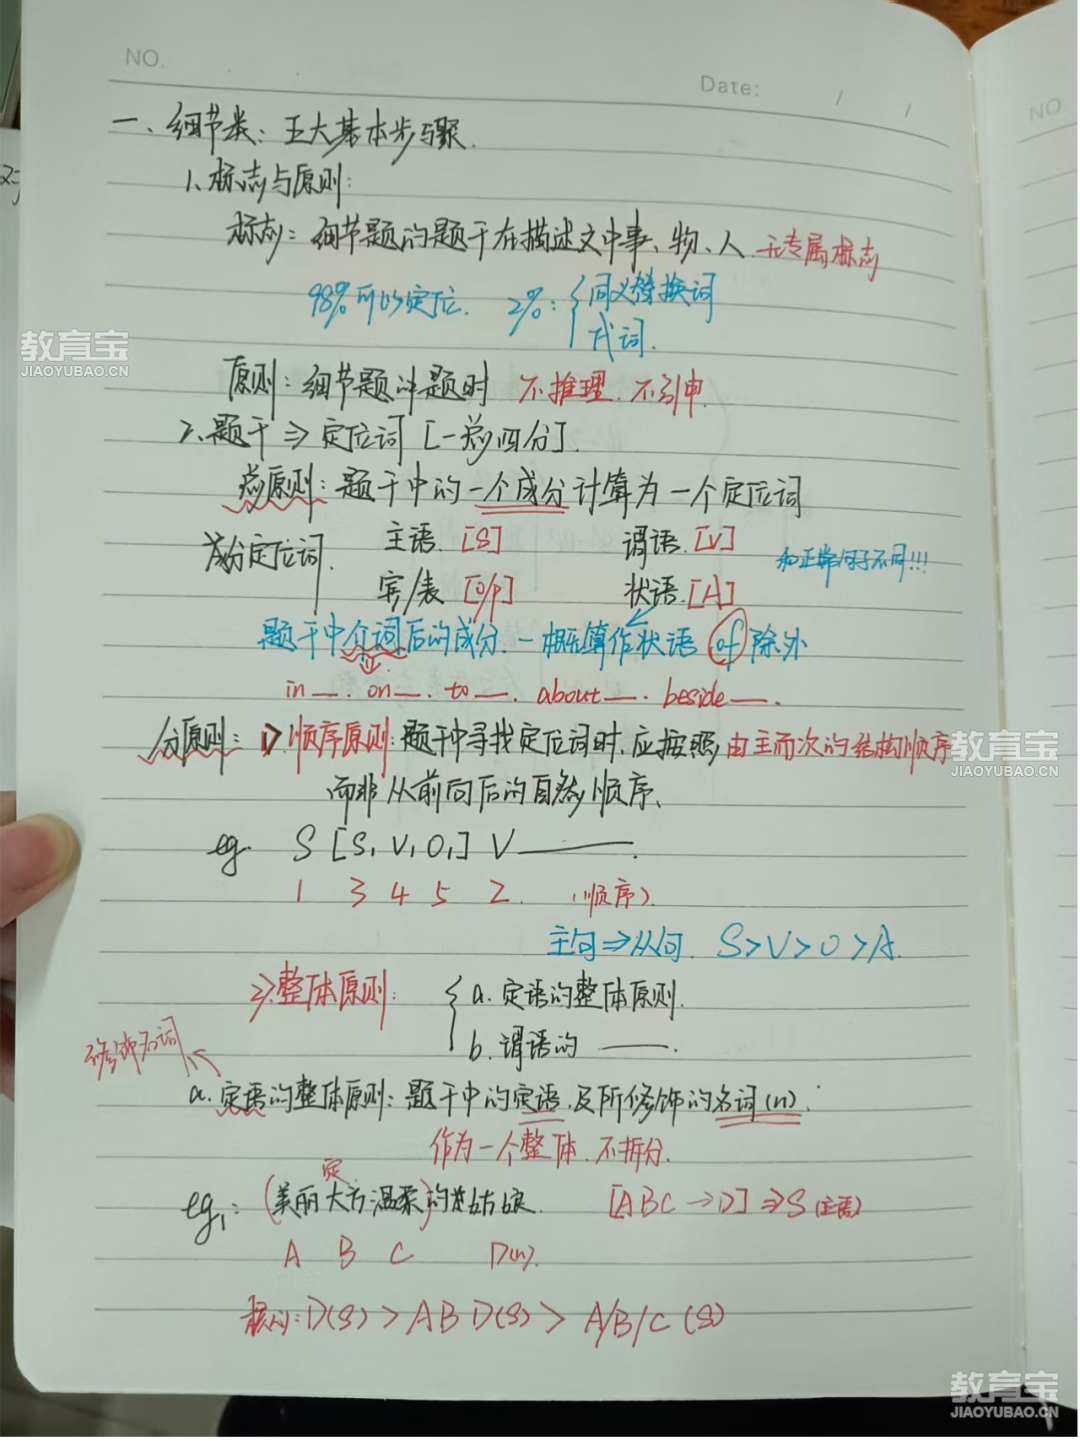 NO.
Date: / /
NO.
一、细节类：五大基本步骤.
1、标志与原则:
标志：细节题的题干在描述文中事、物、人 无专属标志
98%可以定位. 2%: { 同义替换词
代词.
原则：细节题冲题时 不推理.不引申.
2、题干 ⇒ 定位词 [一总四分].
总原则：题干中的一个成分计算为一个定位词
成分定位词. 主语.[S] 谓语.[V] 和正常句子不同!!!
宾/表 [O/P] 状语.[A]
题干中介词后的成分.一概算作状语 of 除外
in —. on —. to —. about —. beside —.
分原则: 1> 顺序原则:题干中寻找定位词时.应按照 由主而次的结构顺序
而非从前向后的自然顺序、
eg. S [S₁ V₁ O₁] V ———.
1 3 4 5 2. (顺序).
主句⇒从句. S>V>O>A.
2>.整体原则: { a. 定语的整体原则.
b. 谓语的 ———.
修饰名词
a. 定语的整体原则：题干中的定语.及所修饰的名词(n).
作为一个整体.不拆分.
定
eg₁: (美丽大方温柔)的姑娘. [ABC→D]⇒S(主语)
A B C D(n).
核心: D(S) > AB D(S) > A/B/C (S)
教育宝
JIAOYUBAO.CN
教育宝
JIAOYUBAO.CN
教育宝
JIAOYUBAO.CN